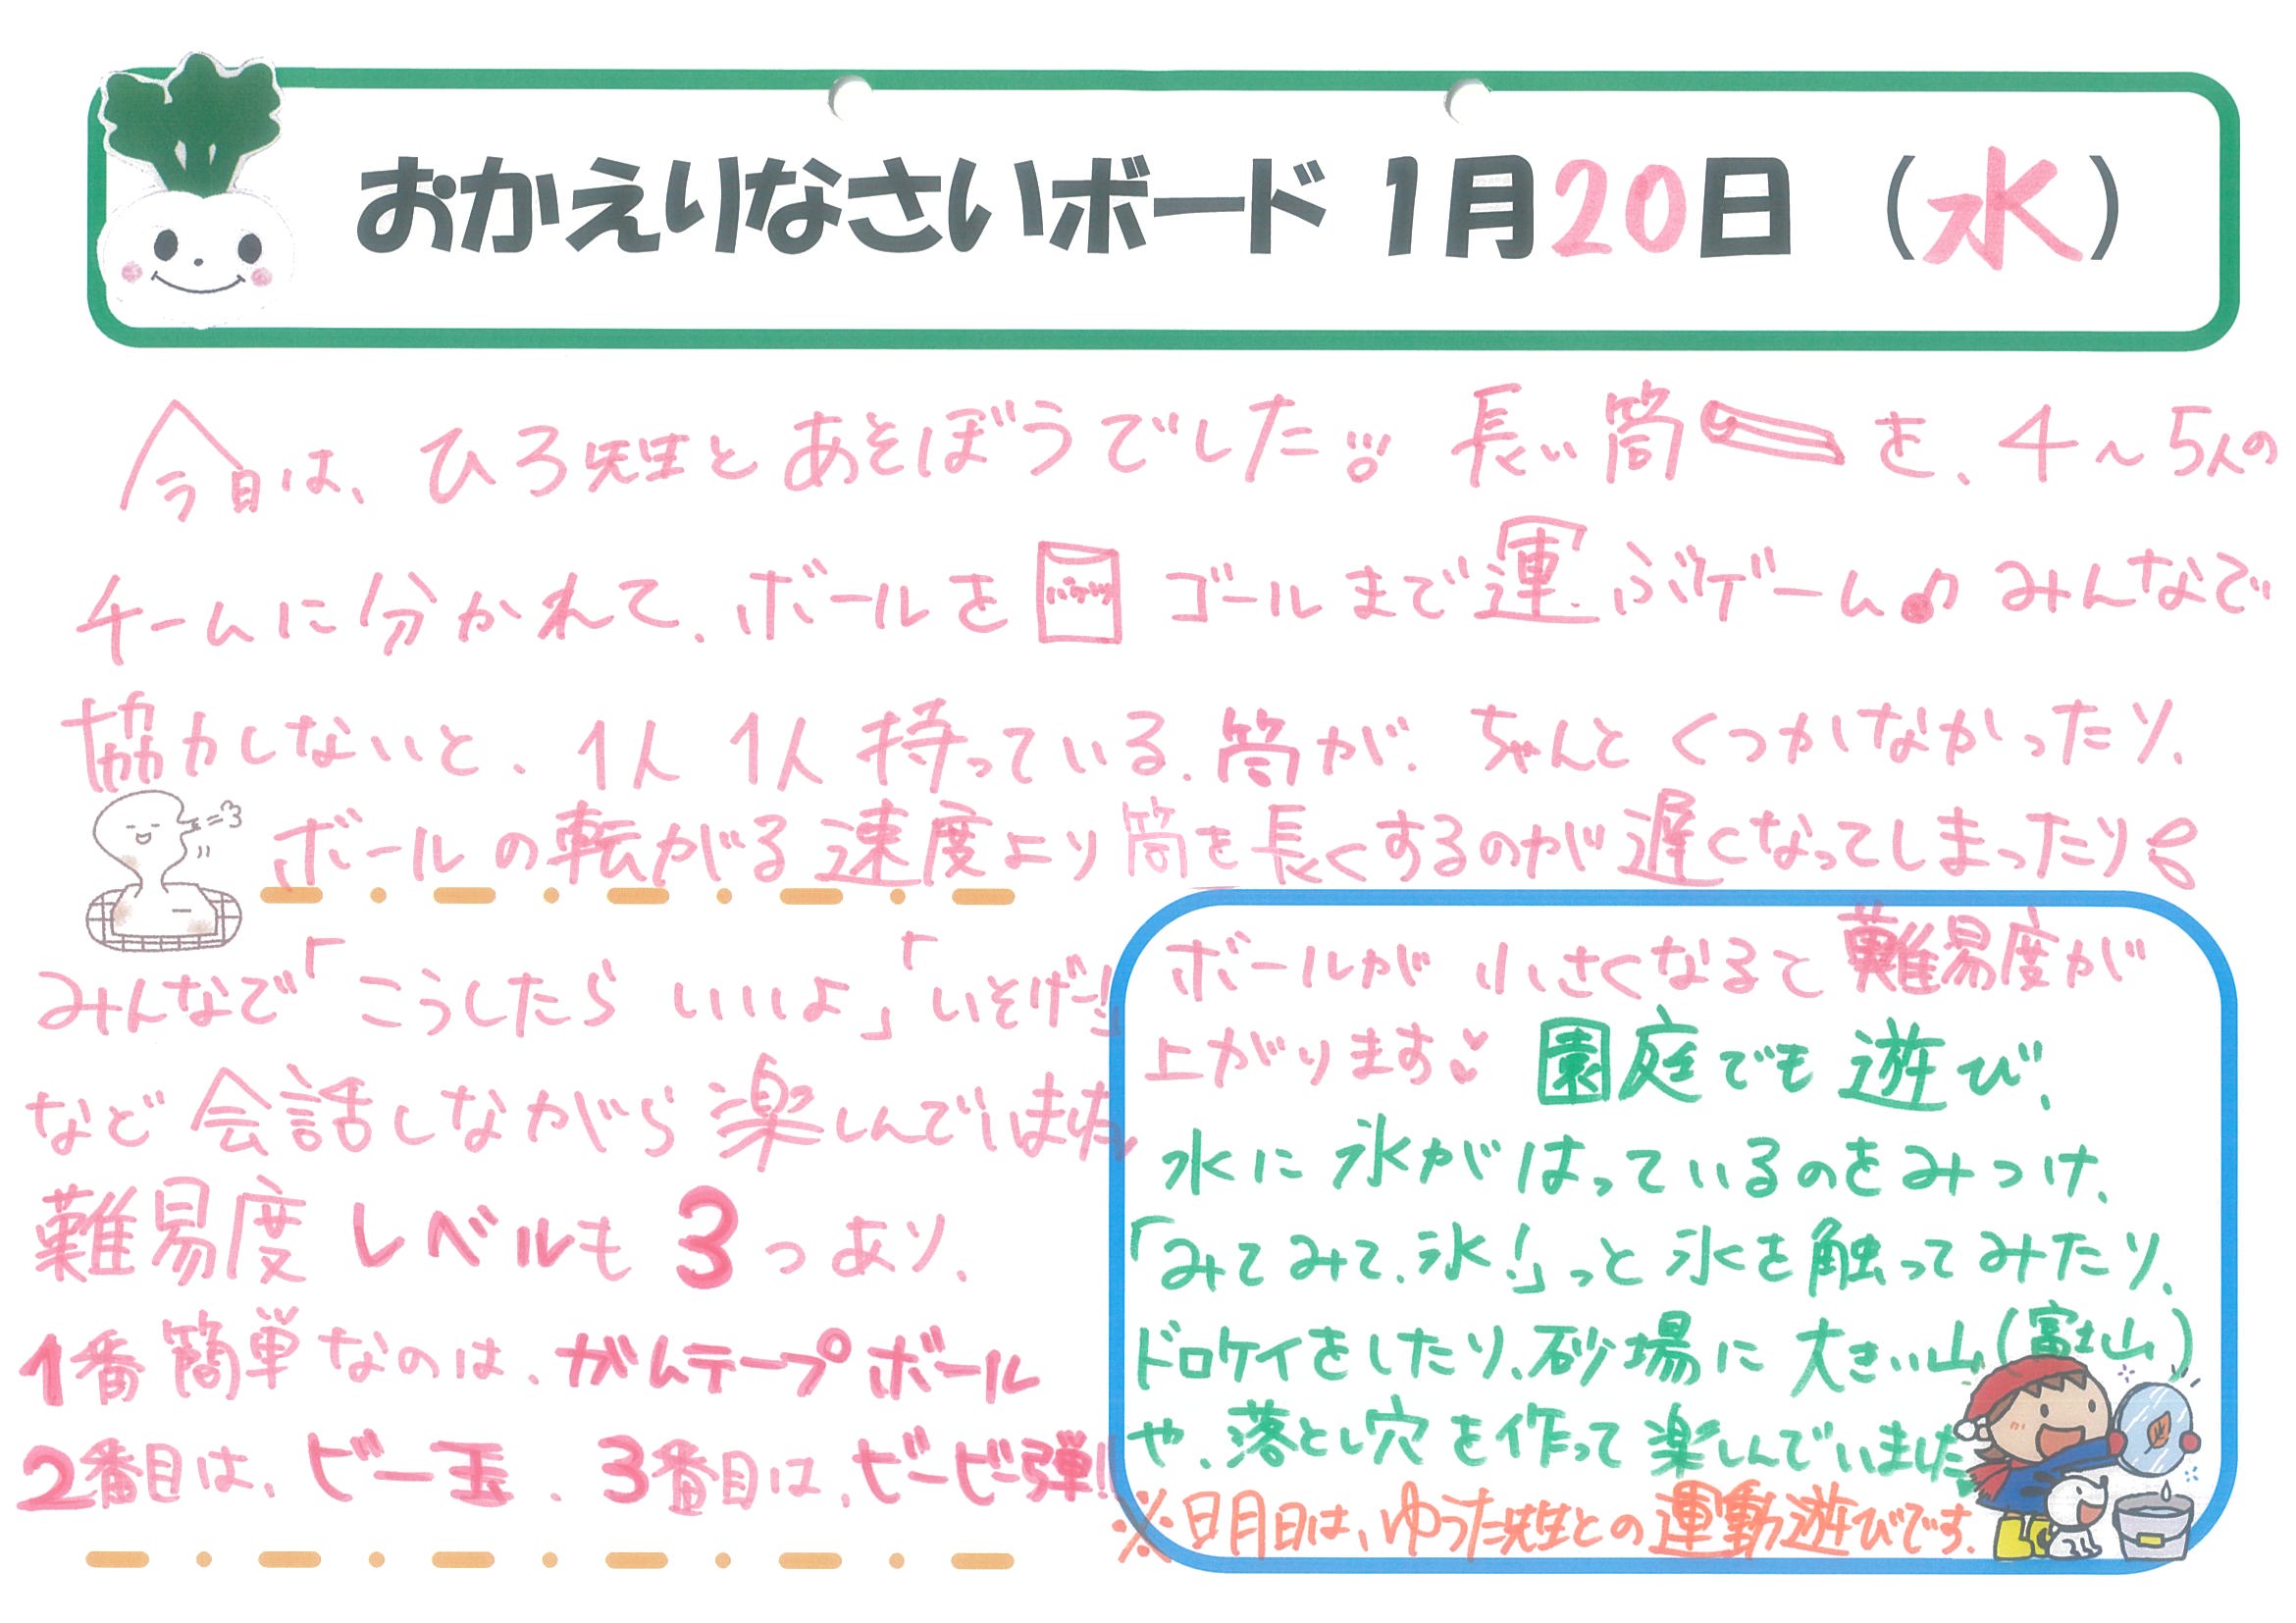 おかえりなさいボード 1月20日 (水)
今日は、ひろ先生とあそぼうでした 長い筒を、4〜5人の
チームに分かれて、ボールを ゴールまで運ぶゲーム♪ みんなで
協力しないと、1人1人持っている、筒が、ちゃんとくっつかなかったり、
ボールの転がる速度より筒を長くするのが遅くなってしまったり
みんなで「こうしたらいいよ」「いそげー!!
など会話しながら楽しんでいました
難易度レベルも3つあり、
1番簡単なのは、がムテープボール
2番目は、ビー玉、3番目は、ビービー弾!!
ボールが小さくなると難易度が
上がります♥ 園庭でも遊び、
水に氷がはっているのをみつけ、
「みてみて、氷!」っと氷を触ってみたり、
ドロケイをしたり、砂場に大きい山(富士山)
や、落とし穴を作って楽しんでいました
※明日は、ゆうた先生との運動遊びです。